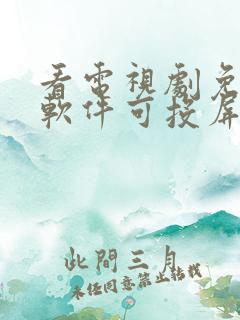 看電視劇免
軟件可投屏
此間三月
未经同意禁止转载